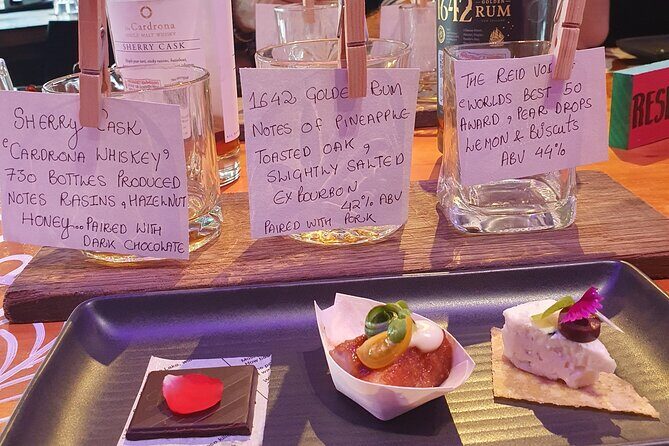 The Cardrona
SINGLE MALT WHISKY
SHERRY CASK
1642
GOLDEN
RUM
SHERRY CASK
"CARDRONA WHISKEY"
730 BOTTLES PRODUCED
NOTES RASINS, HAZELNUT
HONEY... PAIRED WITH
DARK CHOCOLATE
1642 GOLDEN RUM
NOTES OF PINEAPPLE
TOASTED OAK,
SLIGHTLY SALTED
EX BOURBON
42% ABV
PAIRED WITH PORK
THE REID VOD
WORLDS BEST 50
AWARD, PEAR DROPS
LEMON & BISCUTS
ABV 44%
RESE